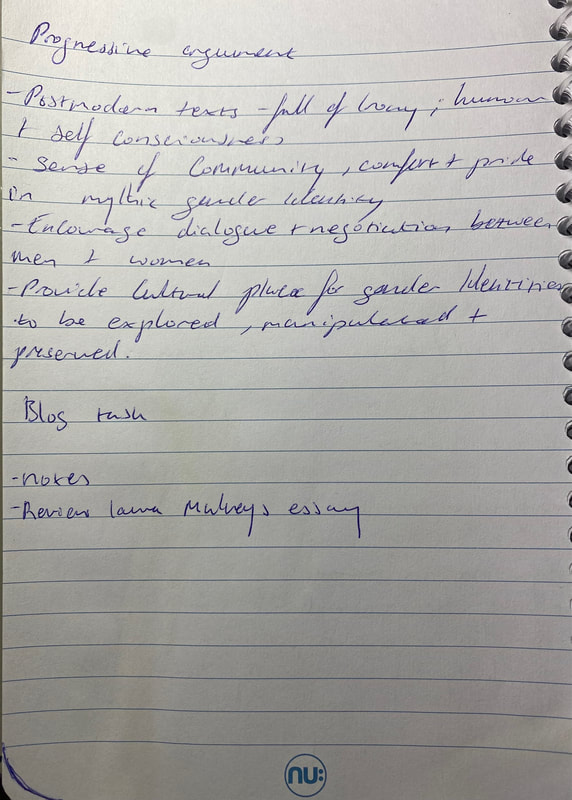 Progressive argument
- Postmodern texts - full of irony, humour
+ self consciousness
- sense of Community, comfort + pride
in mythic gender identity
- Encourage dialogue + negotiation between
men + women
- Provide Cultural place for gender Identities
to be explored, manipulated +
preserved.
Blog task
- notes
- Review laura Mulveys essay
nu: